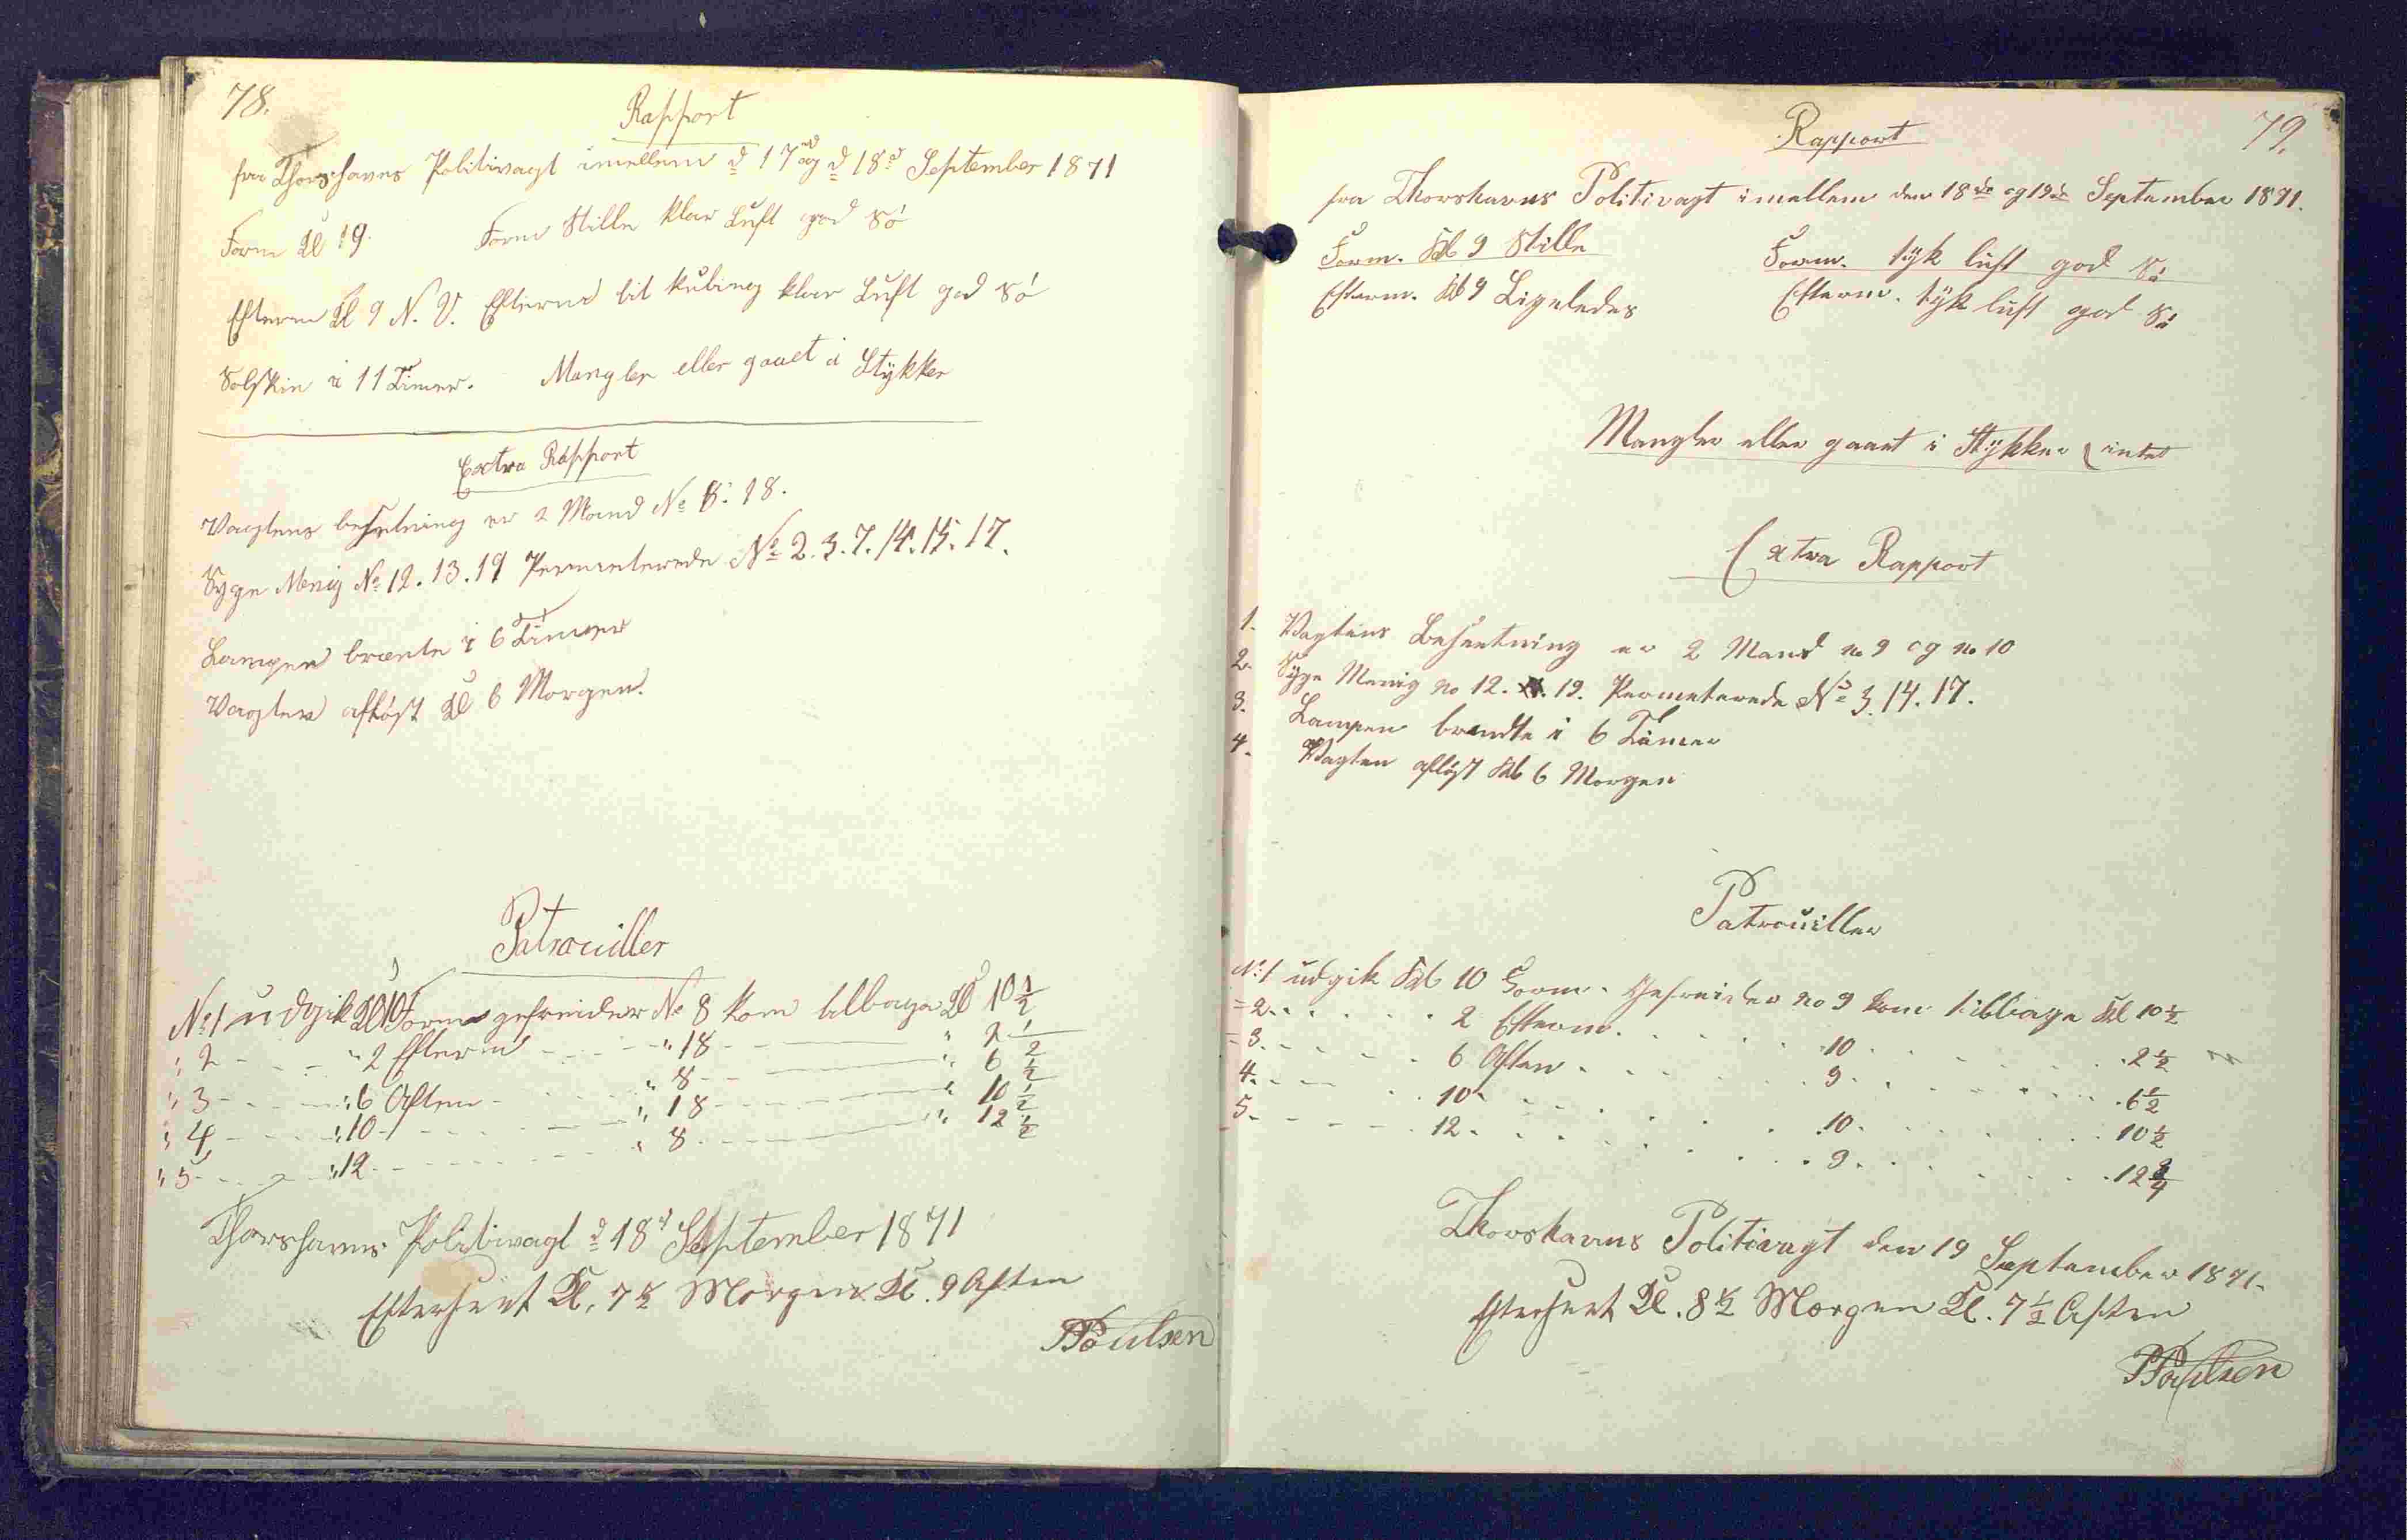 78.
Rapport
fra Thorshavns Politivagt imellem d 17 og d 18d September 1871
Form Kl 9. Form Stille klar Luft god Sö
Efterm Kl 9 N. V. Efterm lit kuling klar Luft god Sö
Solskin i 11 Timer. Mangler eller gaaet i Stykker
Extra Rapport
Vagtens besetning er 2 Mand No 8. 18.
Syge Menig No 12. 13. 19 Permeterede No 2. 3. 7. 14. 15. 17.
Lampen brænte i 6 Timer
Vagten aflöst Kl 6 Morgen.
Patrouiller
No 1 udgik Kl 10 Form gefreider No 8 kom tilbage Kl 10 1/2
" 2 - - - " 2 Efterm - - - " 18 - - - " 2 1/2
" 3 - - - " 6 Aften - - - " 8 - - - " 6 1/2
" 4 - - - " 10 - - - " 18 - - - " 10 1/2
" 5 - - - " 12 - - - " 8 - - - " 12 1/2
Thorshavns Politivagt d 18d September 1871
Efterseet Kl. 7 1/2 Morgen Kl. 9 Aften
Poulsen
79.
Rapport
fra Thorshavns Politivagt imellem den 18de og 19de September 1871.
Form. Kl 9 Stille Form. tyk luft god Sö
Efterm. Kl 9 Ligeledes Efterm. tyk luft god Sö
Mangler eller gaaet i Stykker intet
Extra Rapport
1. Vagtens Besætning er 2 Mand no 9 og no 10
2. Syge Menig no 12. 19. Permeterede No 3. 14. 17.
3. Lampen brændte i 6 Timer
4. Vagten aflöst Kl 6 Morgen
Patrouiller
No 1 udgik Kl 10 Form. Gefreider no 9 kom tilbage Kl 10 1/2
= 2. . . . . 2 Efterm. . . . . 10 . . . . 2 1/2
= 3. . . . . 6 Aften . . . . 9 . . . . 6 1/2
4. . . . . 10 . . . . 10 . . . . 10 1/2
5. . . . . 12 . . . . 9 . . . . 12 3/4
Thorshavns Politivagt den 19 September 1871.
Efterseet Kl. 8 1/2 Morgen Kl. 7 1/2 Aften
Poulsen